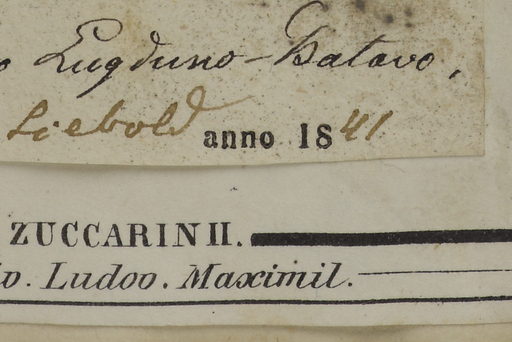 o Lugduno-Batavo,
Siebold anno 1841
ZUCCARINII.
iv. Ludov. Maximil.